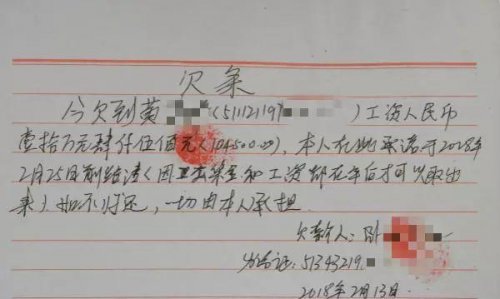 欠条
今欠到黄 (51112119? )工资人民币
壹拾万元肆仟伍佰元(104500.00),本人在此承诺于2018年
2月25日前结清(因 和工资都在年后才可以取出
来),如不 ,一切由本人承担.
欠款人:
身份证:51343219
2018年2月13日.